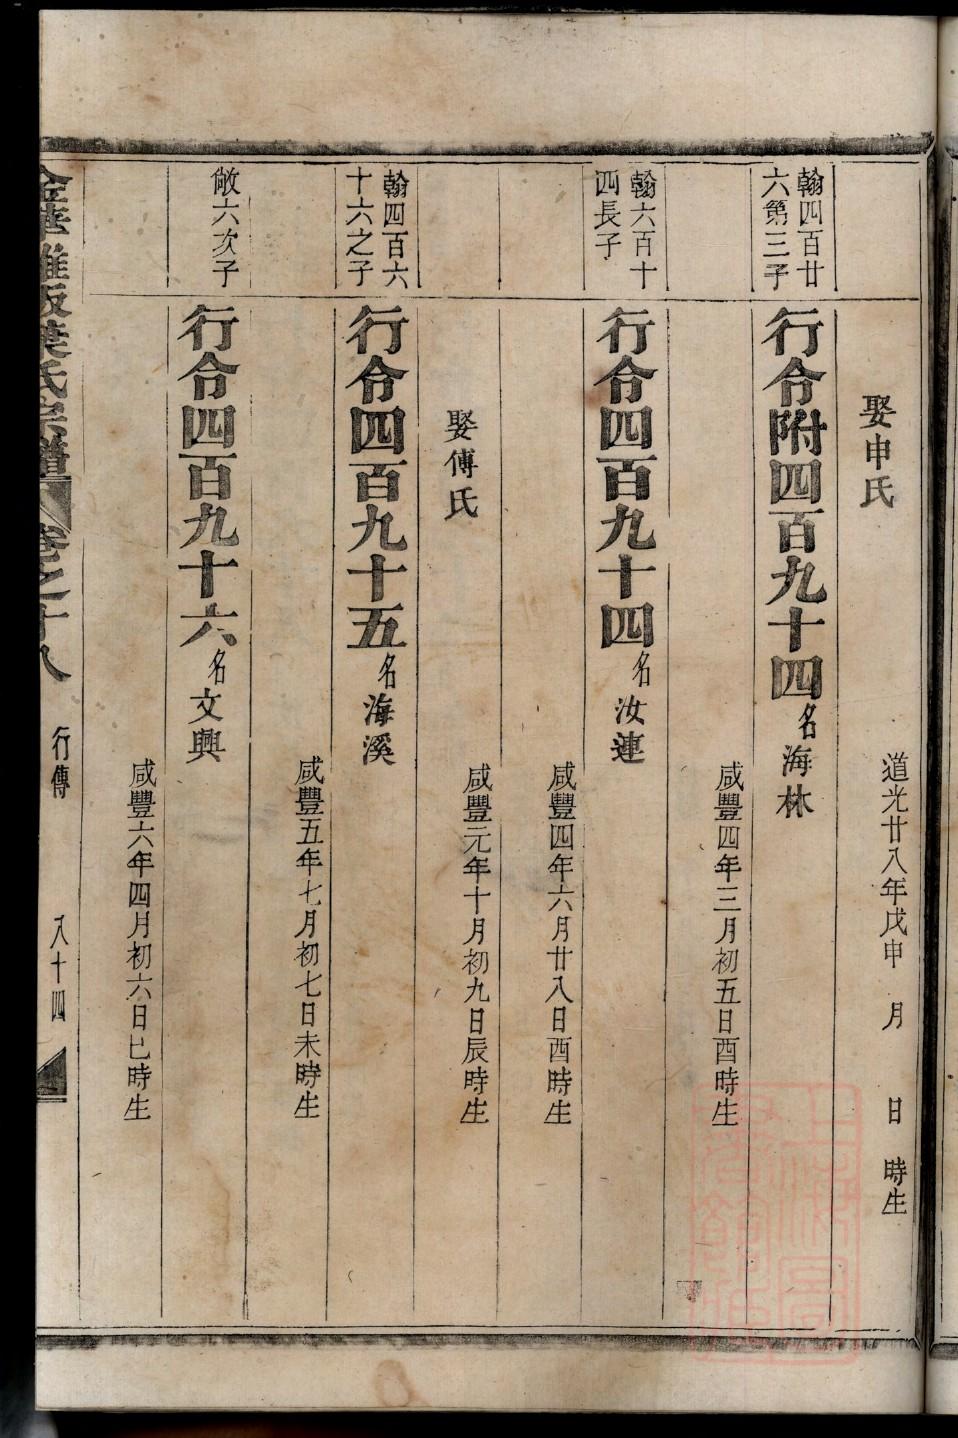 娶申氏
道光廿八年戊申 月 日 時生
翰四百廿
六第三子
行令附四百九十四 名海林
咸豐四年三月初五日酉時生
翰六百十
四長子
行令四百九十四 名汝連
咸豐四年六月廿八日酉時生
娶傅氏
咸豐元年十月初九日辰時生
翰四百六
十六之子
行令四百九十五 名海溪
咸豐五年七月初七日未時生
敞六次子
行令四百九十六 名文興
咸豐六年四月初六日巳時生
金華雅畈葉氏宗譜 卷之十八 行傳 八十四